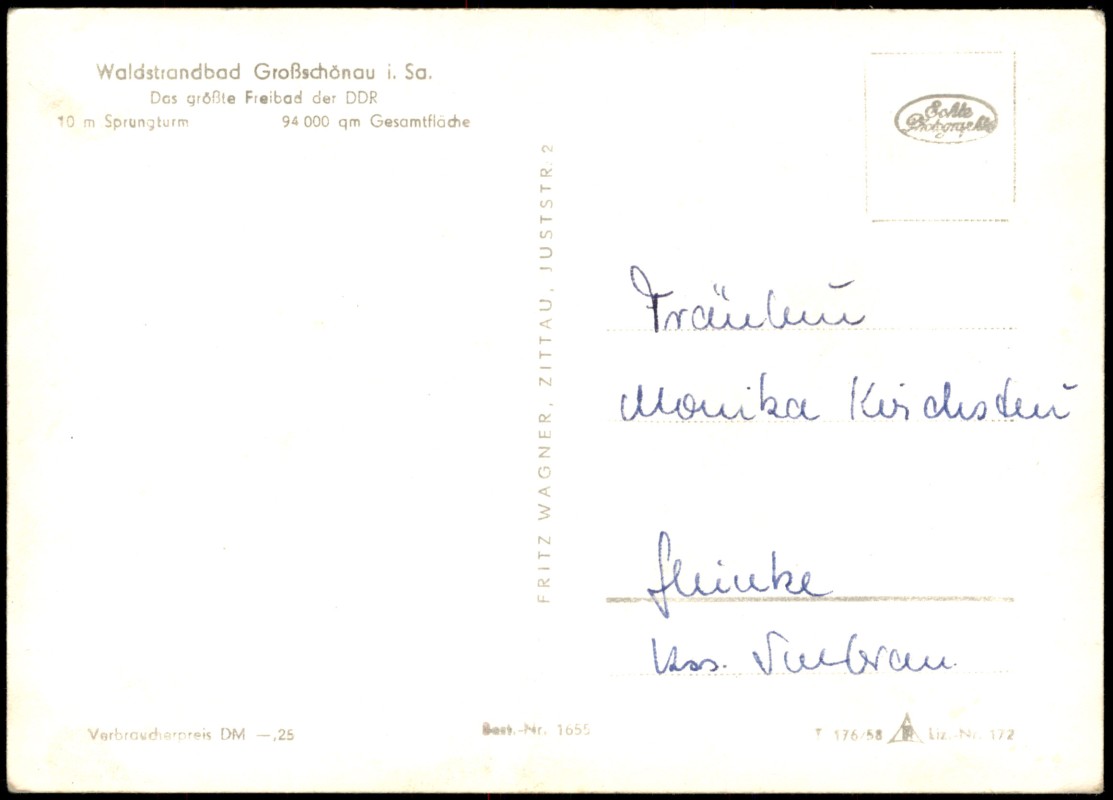 Waldstrandbad Großschönau i. Sa.
Das größte Freibad der DDR
10 m Sprungturm 94 000 qm Gesamtfläche
FRITZ WAGNER, ZITTAU, JUSTSTR. 2
Echte
Photographie
Fräulein
Monika Kirchstein
Krs.
Verbraucherpreis DM —,25
Best.-Nr. 1655
T 176/58 Liz.-Nr. 172